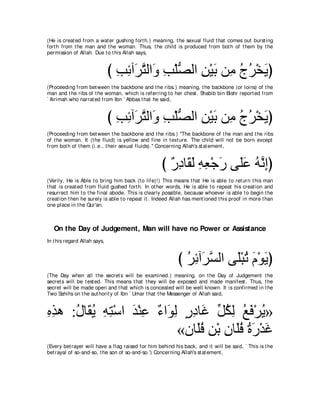 (He is created from a water gushing forth.) meaning, the sexual fluid that comes out bursting
forth from the man and the woman. Thus, the child is produced from both of them by the
permission of Allah. Due to this Allah says,
﴿يَخْرُجُ مِن بَيْنِ الصُّلْبِ وَالتَّرَآئِبِ ﴾
(Proceeding from between the backbone and the ribs.) meaning, the backbone (or loins) of the
man and the ribs of the woman, which is referring to her chest. Shabib bin Bishr reported from
`Ikrimah who narrated from Ibn `Abbas that he said,
﴿يَخْرُجُ مِن بَيْنِ الصُّلْبِ وَالتَّرَآئِبِ ﴾
(Proceeding from between the backbone and the ribs.) "The backbone of the man and the ribs
of the woman. It (the fluid) is yellow and fine in texture. The child will not be born except
from both of them (i.e., their sexual fluids)." Concerning Allah's statement,
﴿إِنَّهُ عَلَى رَجْعِهِ لَقَادِرٌ ﴾
(Verily, He is Able to bring him back (to life)!) This means that He is able to return this man
that is created from fluid gushed forth. In other words, He is able to repeat his creation and
resurrect him to the final abode. This is clearly possible, because whoever is able to begin the
creation then he surely is able to repeat it. Indeed Allah has mentioned this proof in more than
one place in the Qur'an.
On the Day of Judgement, Man will have no Power or Assistance
In this regard Allah says,
﴿يَوْمَ تُبْلَى السَّرَآئِرُ ﴾
(The Day when all the secrets will be examined.) meaning, on the Day of Judgement the
secrets will be tested. This means that they will be exposed and made manifest. Thus, the
secret will be made open and that which is concealed will be well known. It is confirmed in the
Two Sahihs on the authority of Ibn `Umar that the Messenger of Allah said,
«يُرْفَعُ لِكُلِّ غَادِرٍ لِوَاءٌ عِنْدَ اسْتِهِ يُقَالُ: هَذِهِ
غَدْرَةُ فُلَانِ بْنِ فُلَانٍ»
(Every betrayer will have a flag raised for him behind his back, and it will be said, `This is the
betrayal of so-and-so, the son of so-and-so.') Concerning Allah's statement,